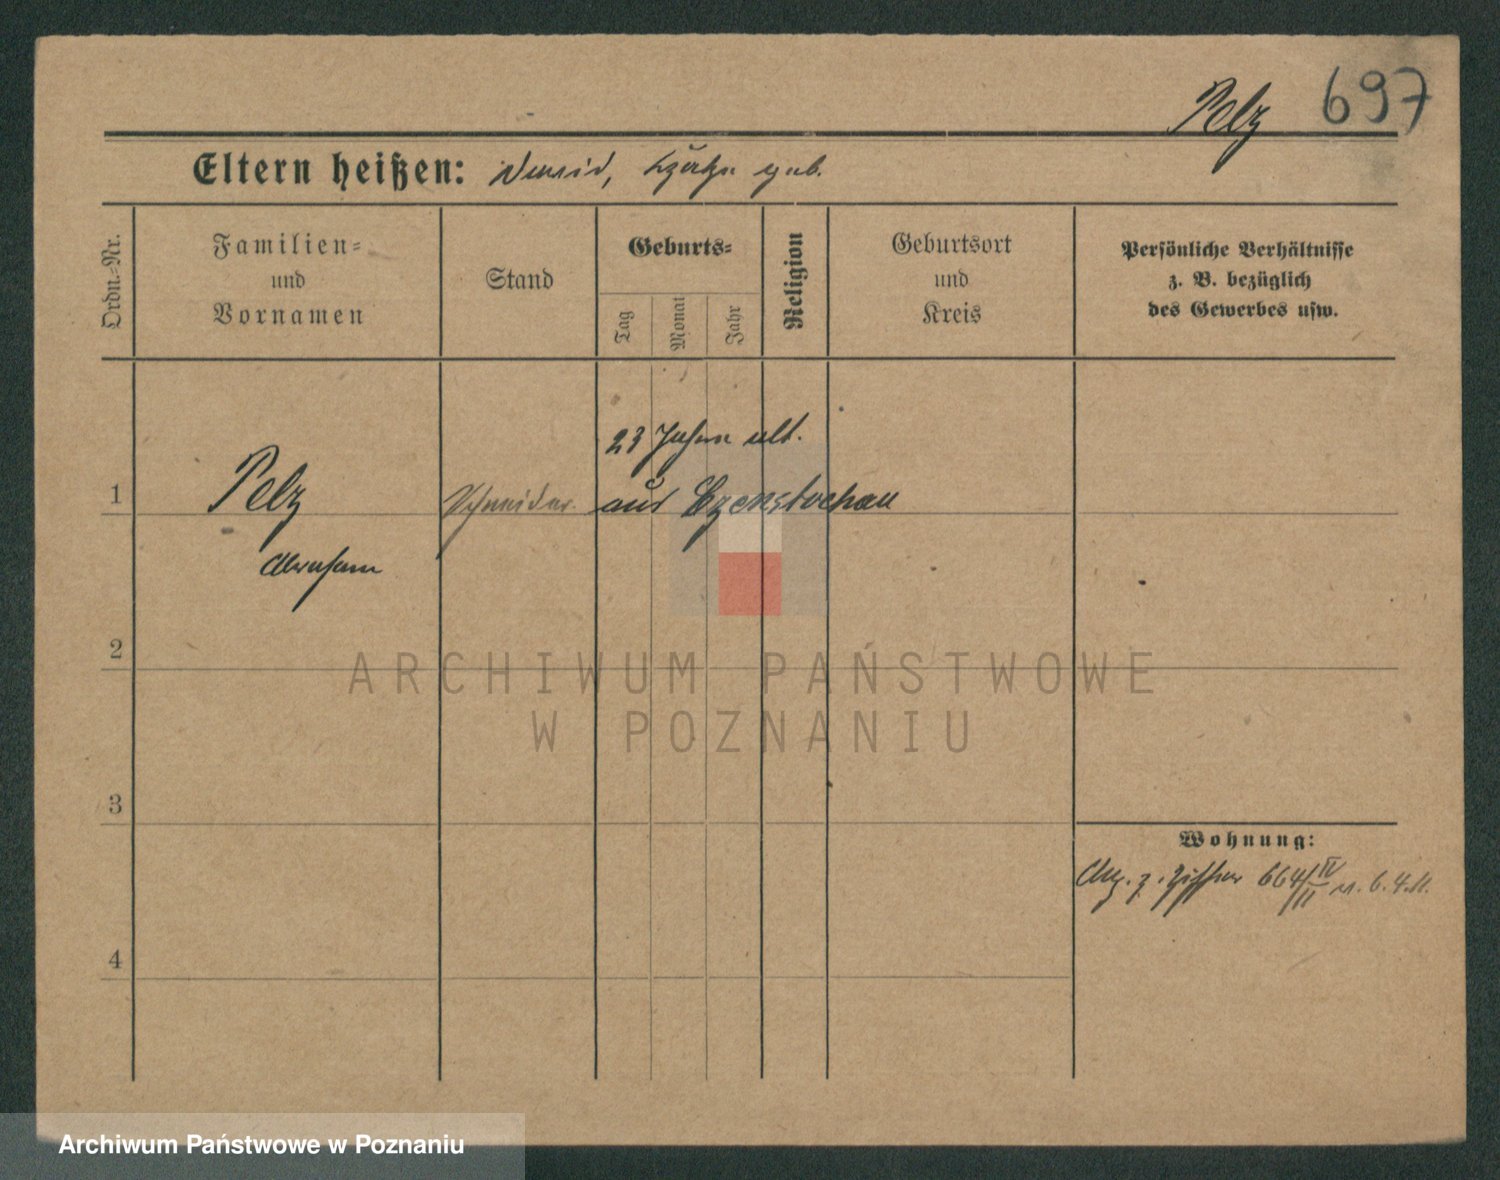 Pelz 697
Eltern heißen: geb.
Ordn.=Nr.
Familien=
und
Vornamen
Stand
Geburts=
Tag
Monat
Jahr
Religion
Geburtsort
und
Kreis
Persönliche Verhältnisse
z. B. bezüglich
des Gewerbes usw.
23 Jahre alt.
1 Pelz Schneider aus Czenstochau
Abraham
2
ARCHIWUM PAŃSTWOWE
W POZNANIU
3
Wohnung:
Anz. z. Ziffer 664/IV/II v. 6.4.11.
4
Archiwum Państwowe w Poznaniu